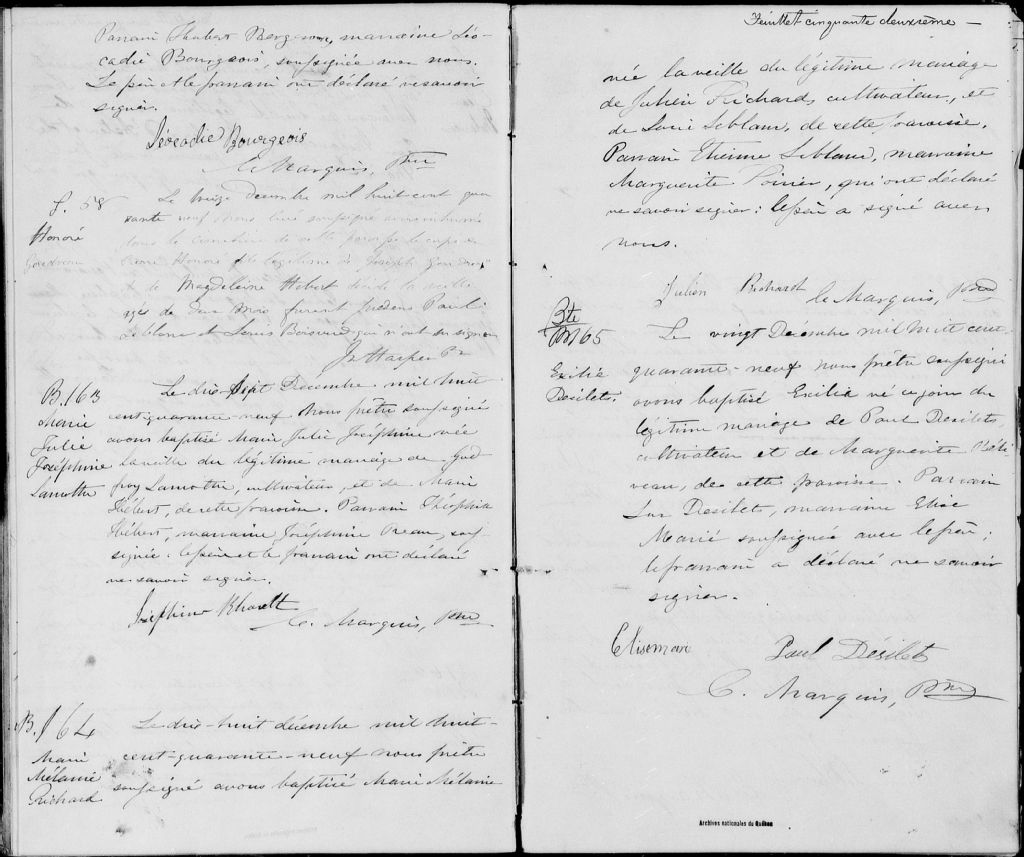 Parrain Hubert Bergeron, marraine Léo-
cadie Bourgeois, soussignée avec nous.
Le père et le parrain ont déclaré ne savoir
signer.
Léocadie Bourgeois
C. Marquis, Ptre
S. 58
Honoré
Le treize décembre mil huit cent qua
rante neuf Nous Curé soussigné avons inhumé
dans le cimetière de cette paroisse le corps de
Honoré fils légitime de Joseph
& de Magdeleine Hebert décédé la veille
agé de deux mois furent présens Paul
Leblanc et Louis qui n'ont su signer
Js Harper Ptr
B. 163
Marie
Julie
Joséphine
Lamothe
Le dix-sept Décembre mil huit
cent-quarante-neuf Nous prêtre soussigné
avons baptisé Marie Julie Joséphine née
la veille du légitime mariage de God
froy Lamothe, cultivateur, et de Marie
Hébert, de cette paroisse. Parrain Théophile
Hébert, marraine Joséphine, sous
signée. le père et le parrain ont déclaré
ne savoir signer.
Joséphine
C. Marquis, Ptre
B. 164
Marie
Mélanie
Richard
Le dix-huit décembre mil huit-
cent-quarante-neuf nous prêtre
soussigné avons baptisé Marie Mélanie
Feuillet cinquante deuxième —
née la veille du légitime mariage
de Julien Richard, cultivateur, et
de Louise Leblanc, de cette paroisse.
Parrain Etienne Leblanc, marraine
Marguerite Poirier, qui ont déclaré
ne savoir signer; le père a signé avec
nous.
Julien Richard
C. Marquis, Ptre
B 165
Exilie
Desilets.
Le vingt Décembre mil huit cent
quarante-neuf nous prêtre soussigné
avons baptisé Exilie né ce jour du
légitime mariage de Paul Desilets,
cultivateur et de Marguerite Béli
veau, de cette paroisse. Parrain
Luc Desilets, marraine Elise
Marié soussignée avec le père;
le parrain a déclaré ne savoir
signer.
Elise mari
Paul Désilets
C. Marquis, Ptre
Archives nationales du Québec